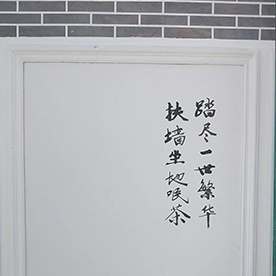 踏尽一世繁华
扶墙坐地吃茶